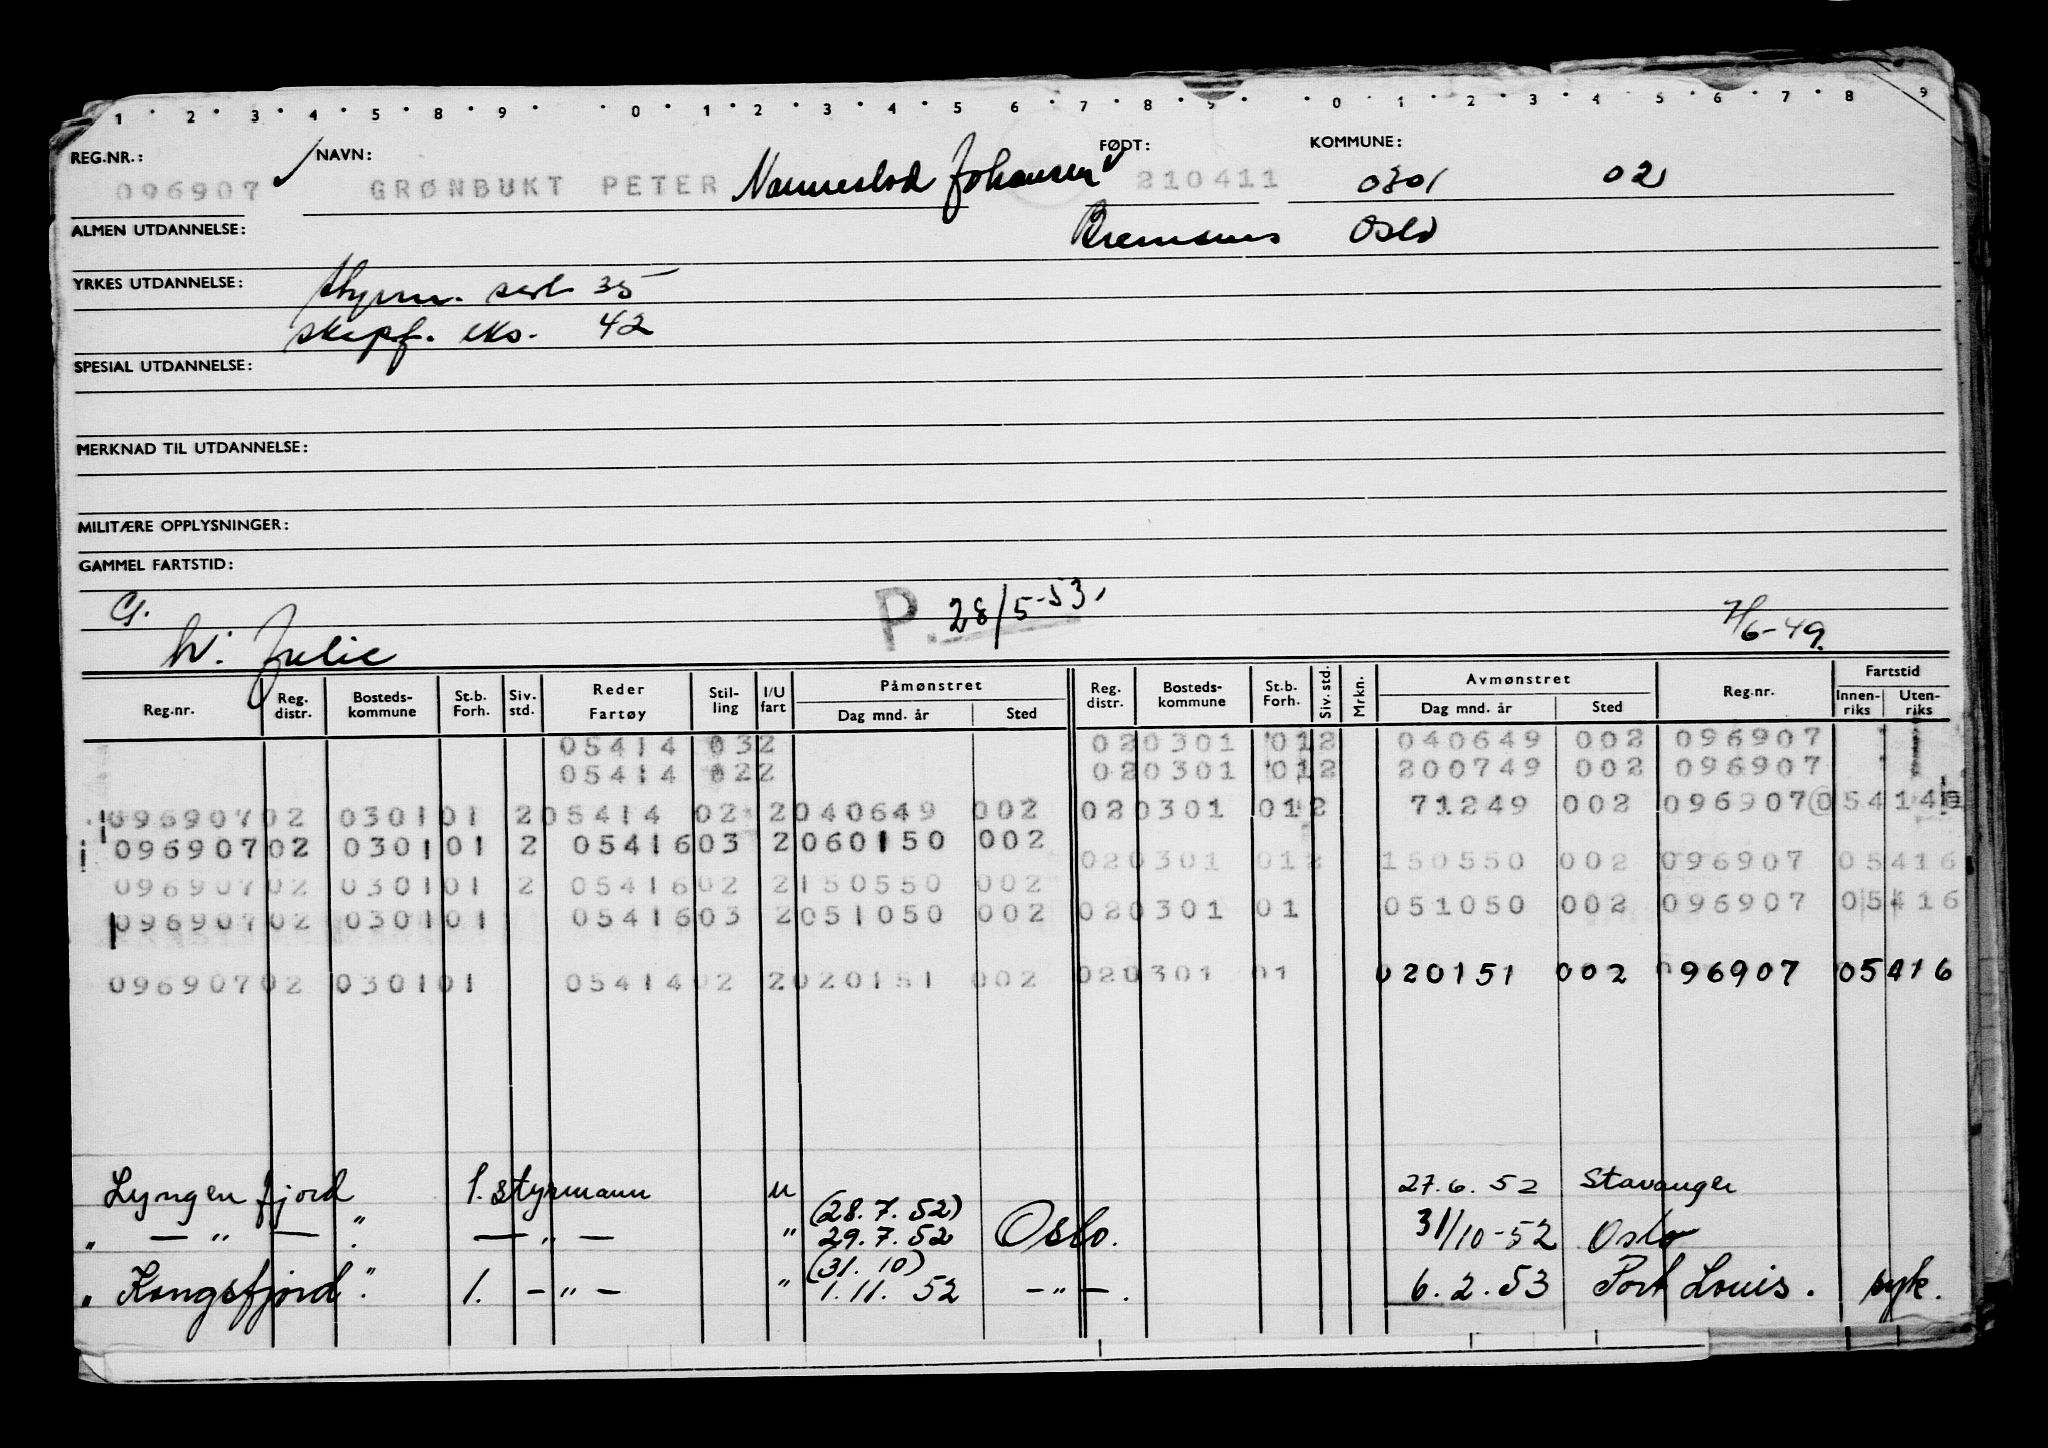 1 2 3 4 5 8 9 0 1 2 3 4 5 6 7 8 9 0 1 2 3 4 5 6 7 8 9
REG.NR.: NAVN: FØDT: KOMMUNE:
096907 GRØNBUKT PETER Johansen 210411 0301 02
ALMEN UTDANNELSE: Bremsnes Oslo
YRKES UTDANNELSE: styrm. sert 35
skipsf. eks. 42
SPESIAL UTDANNELSE:
MERKNAD TIL UTDANNELSE:
MILITÆRE OPPLYSNINGER:
GAMMEL FARTSTID:
G. P. 28/5-53. 7/6-49.
W. Julie
Reg.nr. Reg. distr. Bosteds- kommune St.b. Forh. Siv. std. Reder Fartøy Stil- ling I/U fart Påmønstret Dag mnd. år Sted Reg. distr. Bosteds- kommune St.b. Forh. Siv. std. Mrkn. Avmønstret Dag mnd. år Sted Reg.nr. Fartstid Innen- riks Uten- riks
05414 032 020301 012 040649 002 096907
05414 022 020301 012 200749 002 096907
096907 02 0301 01 2 05414 02 2 040649 002 020301 012 71249 002 096907 05414
096907 02 0301 01 2 05416 03 2 060150 002 020301 012 150550 002 096907 05416
096907 02 0301 01 2 05416 02 2 150550 002
096907 02 0301 01 05416 03 2 051050 002 020301 01 051050 002 096907 05416
096907 02 0301 01 05414 02 2 020151 002 020301 01 020151 002 096907 05416
Lyngenfjord 1. styrmann u 27.6.52 Stavanger
" — " — " — " — " (28.7.52) 29.7.52 Oslo. 31/10-52 Oslo
" Kongsfjord " 1. — " — " (31.10) 1.11.52 — " —. 6.2.53 Port Louis. syk.